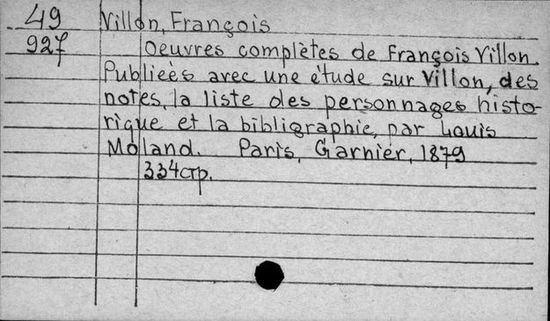 49 Villon, François
927 Oeuvres complètes de François Villon.
Publiées avec une étude sur Villon, des
notes, la liste des personnages histo-
rique et la bibligraphie, par Louis
Moland. Paris, Garnier, 1879
334 стр.